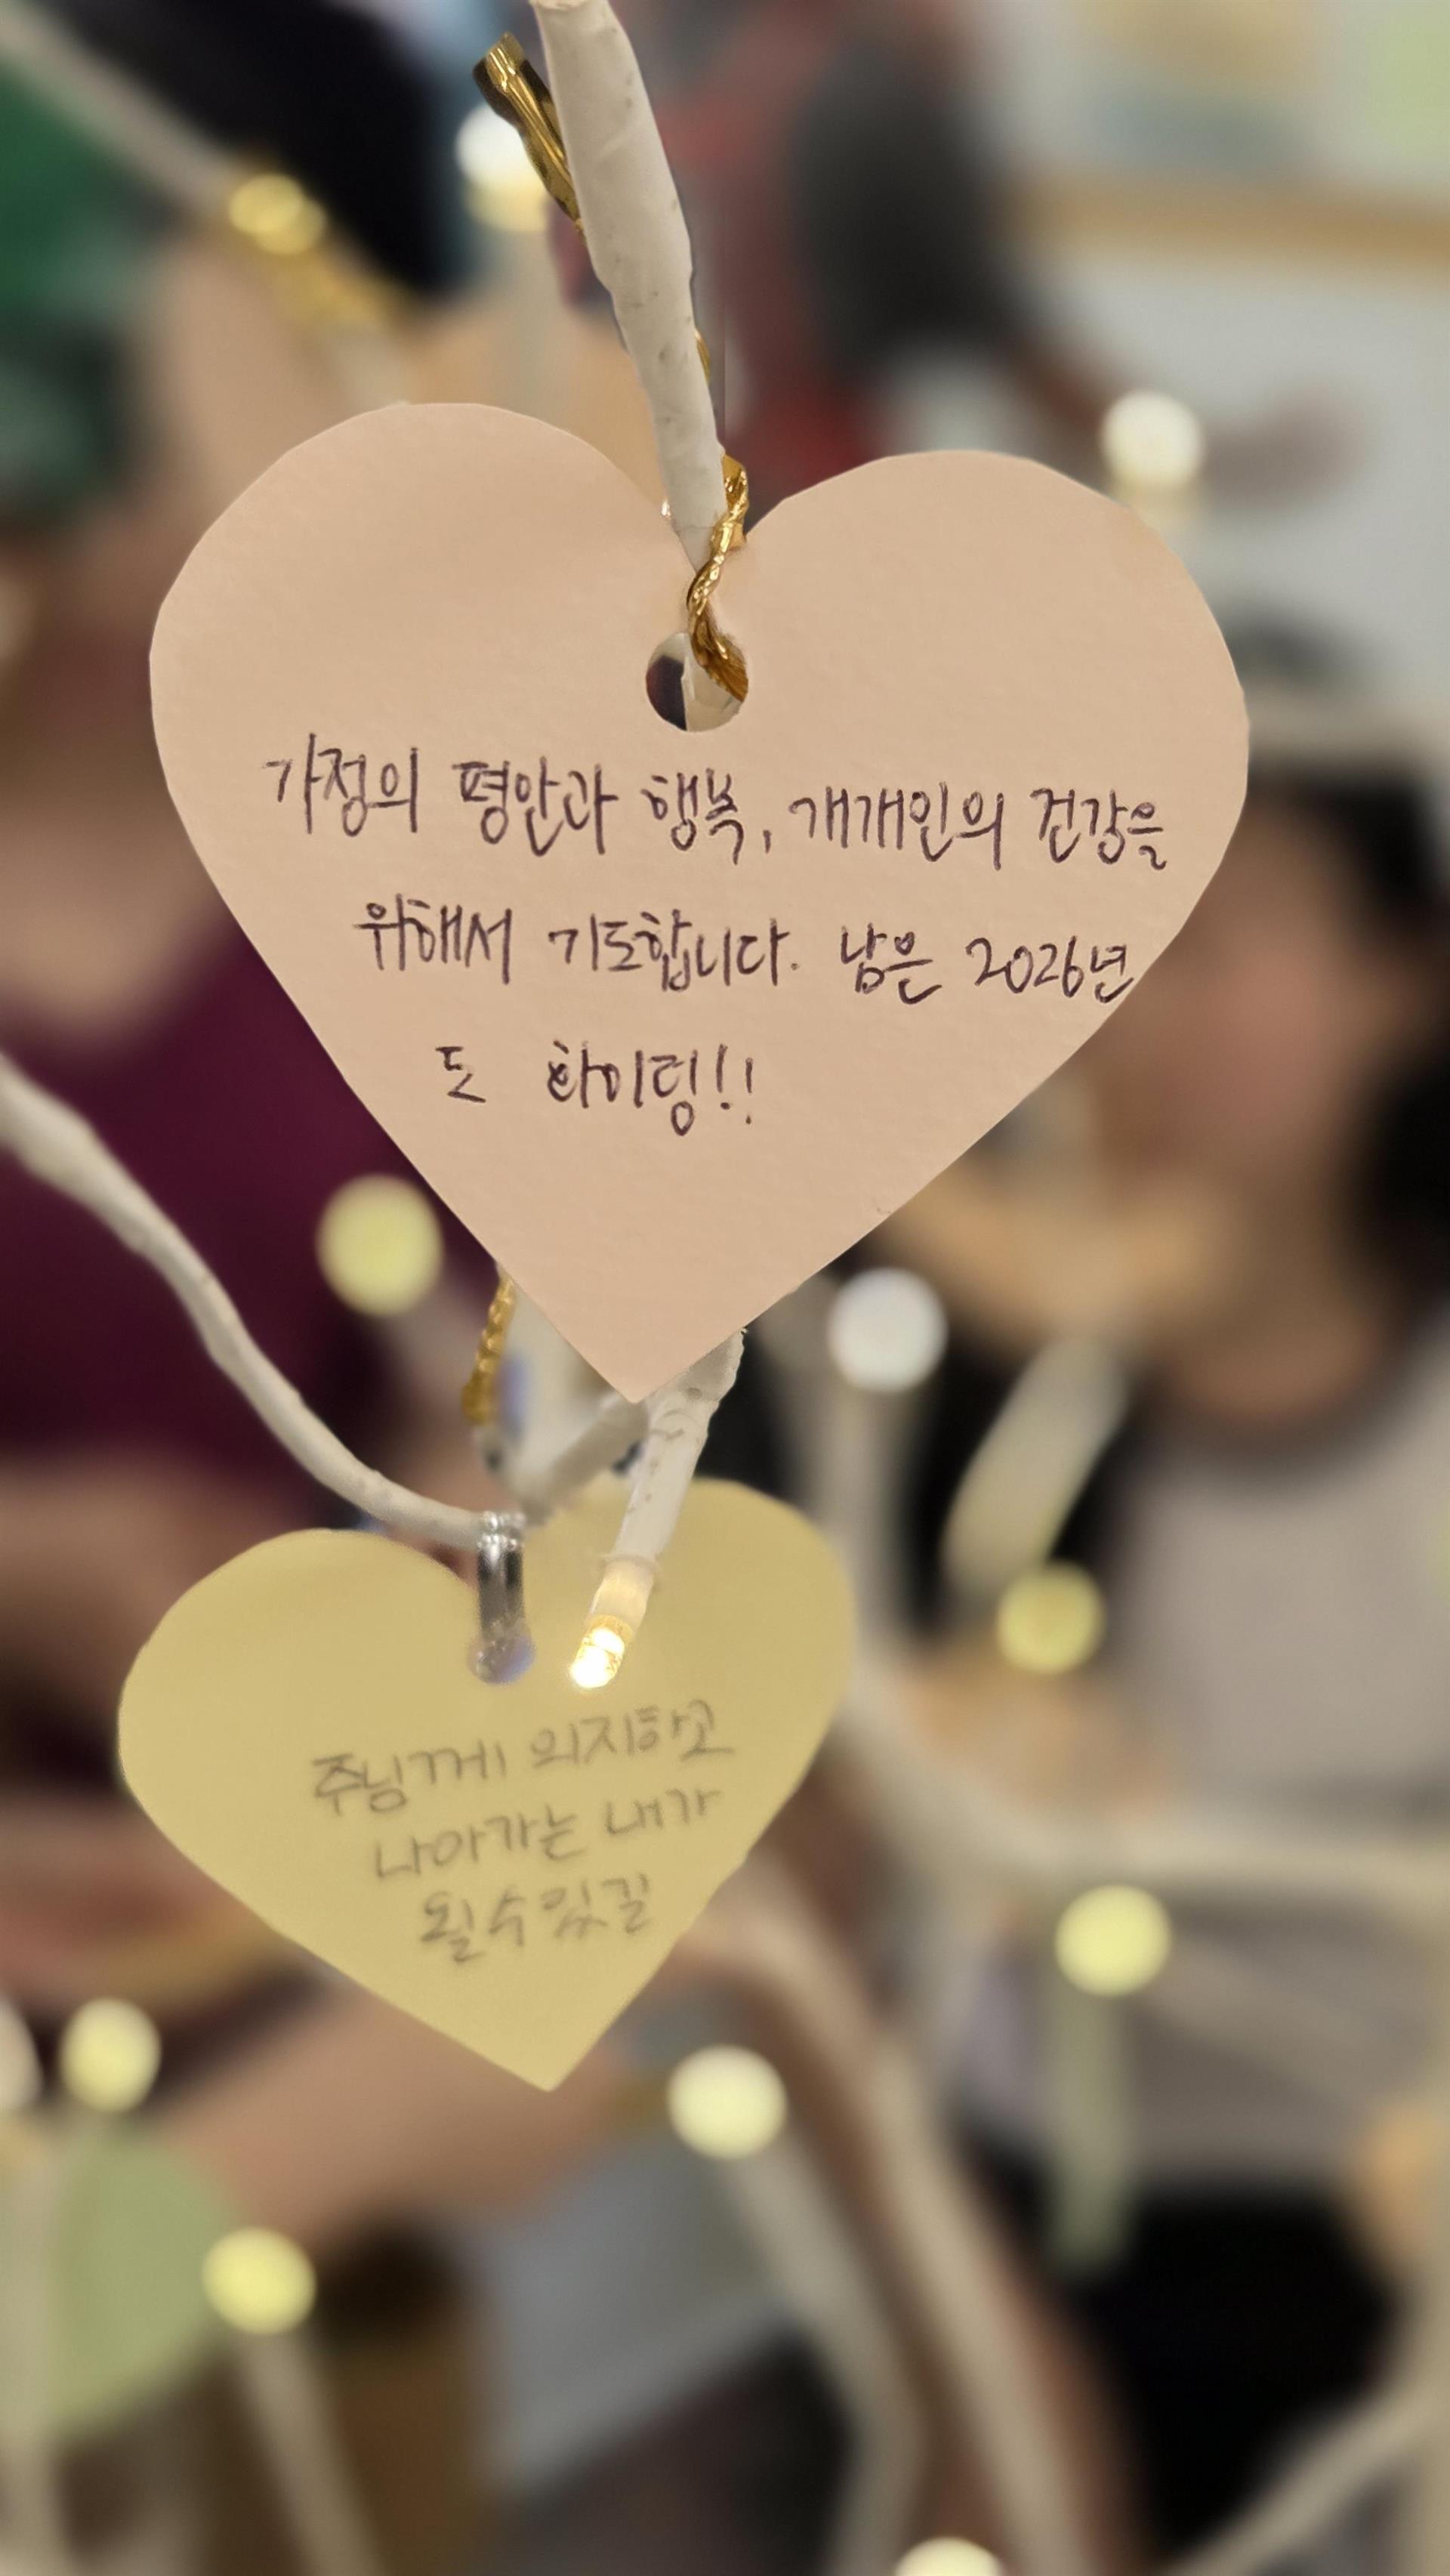 가정의 평안과 행복, 개개인의 건강을
위해서 기도합니다. 남은 2026년
도 화이팅!!
주님께 의지하고
나아가는 내가
될수있길